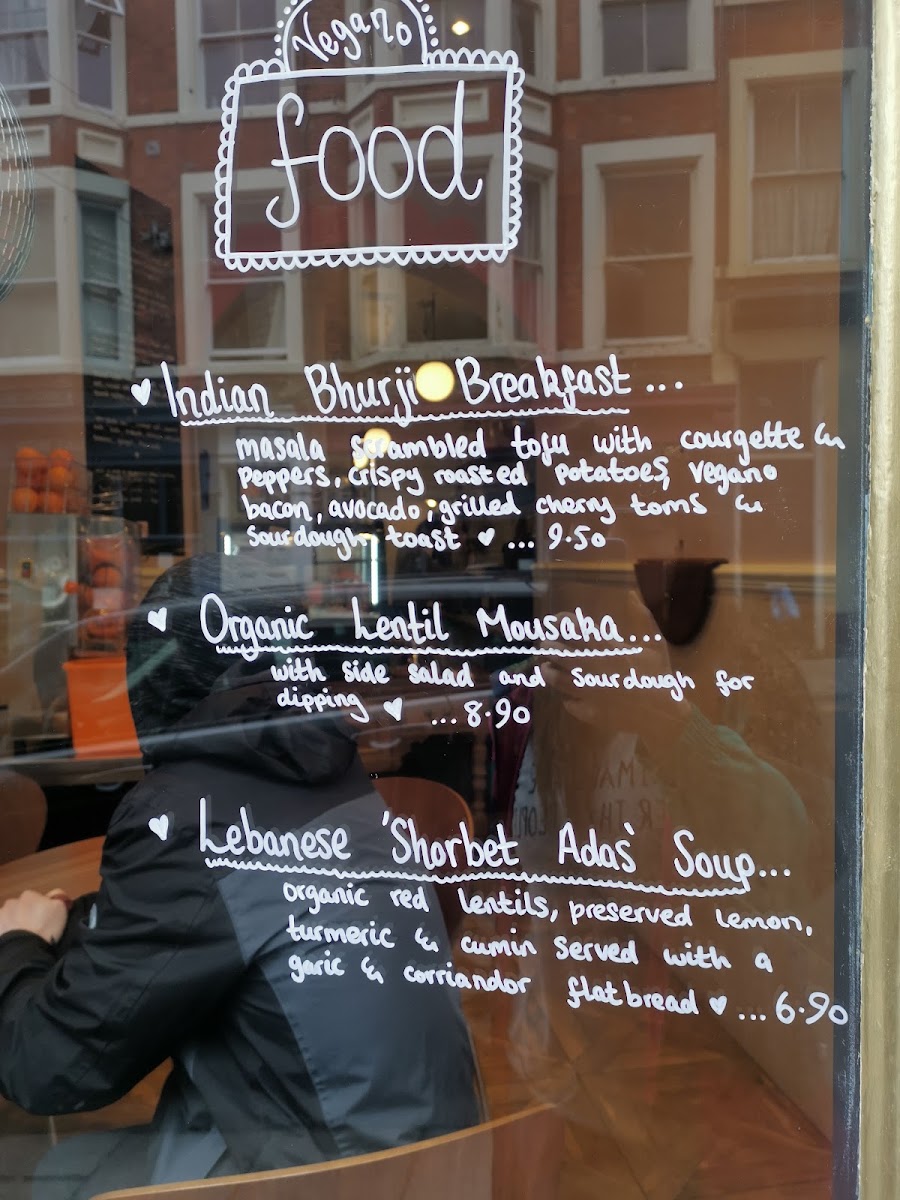 Vegano
food
♥ Indian Bhurji Breakfast...
masala scrambled tofu with courgette &
peppers, crispy roasted potatoes, vegano
bacon, avocado, grilled cherry toms &
sourdough toast ♥ ... 9.50
♥ Organic Lentil Mousaka...
with side salad and sourdough for
dipping ♥ ...8.90
♥ Lebanese 'Shorbet Adas' Soup...
organic red lentils, preserved lemon,
turmeric & cumin served with a
garic & corriandor flatbread ♥ ... 6.90